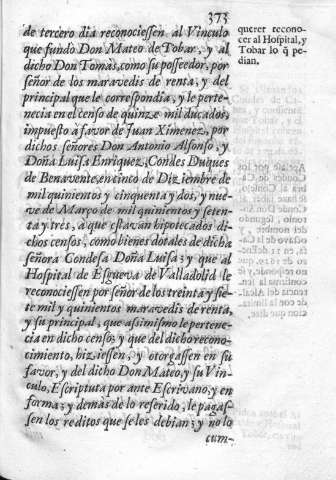 373
de tercero dia reconociessen al Vinculo
que fundo Don Mateo de Tobar, y al
dicho Don Tomàs, como su posseedor, por
señor de los maravedis de renta, y del
principal que le correspondia, y le perte-
necia en el censo de quinze mil ducados,
impuesto a favor de Juan Ximenez, por
dichos señores Don Antonio Alfonso, y
Doña Luisa Enriquez, Condes Duques
de Benavente, en cinco de Diziembre de
mil quinientos y cinquenta y dos, y nue-
ve de Março de mil quinientos y seten-
ta y tres, a que estavan hipotecados di-
chos censos, como bienes dotales de dicha
señora Condesa Doña Luisa; y que al
Hospital de Esgueva de Valladolid le
reconociessen por señor de los treinta y sie-
te mil y quinientos maravedis de renta,
y su principal, que assimismo le pertene-
cia en dicho censo; y que del dicho recono-
cimiento, hiziessen, y otorgassen en su
favor, y del dicho Don Mateo, y su Vin-
culo, Escriptura por ante Escrivano, y en
forma; y demàs de lo referido, le pagas-
sen los reditos que se les debian; y no lo
cum-
querer recono-
cer al Hospital, y
Tobar lo q̃ pe-
dian.